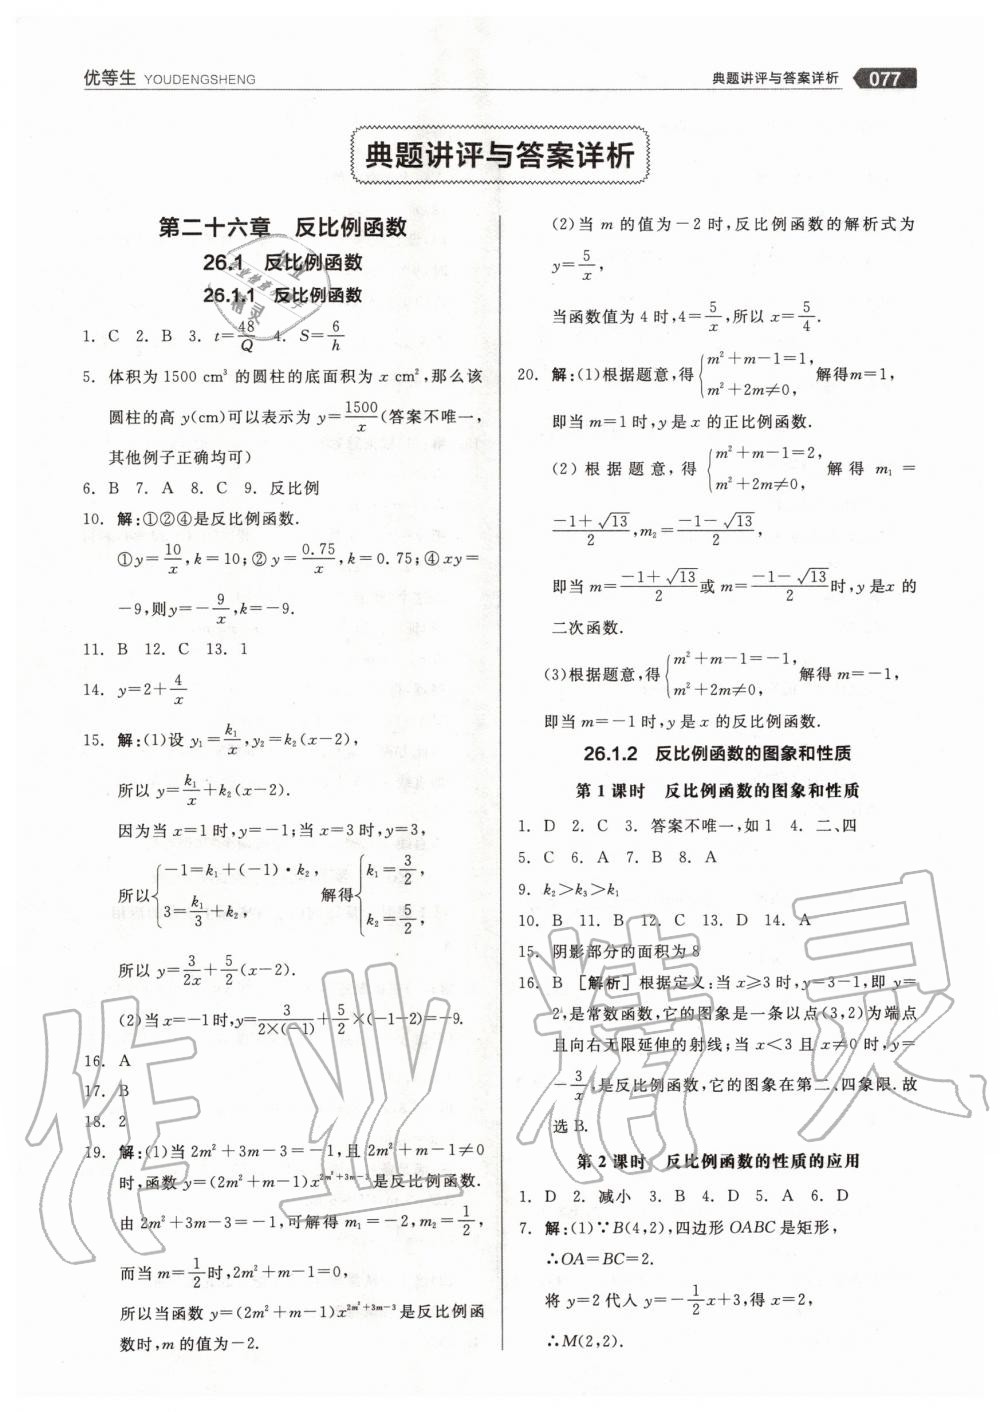 优等生 YOUDENGSHENG
典题讲评与答案详析 077
典题讲评与答案详析
第二十六章 反比例函数
26.1 反比例函数
26.1.1 反比例函数
1. C 2. B 3. t=48/Q 4. S=6/h
5. 体积为 1500 cm³ 的圆柱的底面积为 x cm²,那么该
圆柱的高 y(cm)可以表示为 y=1500/x(答案不唯一,
其他例子正确均可)
6. B 7. A 8. C 9. 反比例
10. 解:①②④是反比例函数.
①y=10/x,k=10;②y=0.75/x,k=0.75;④xy=
-9,则y=-9/x,k=-9.
11. B 12. C 13. 1
14. y=2+4/x
15. 解:(1)设 y₁=k₁/x,y₂=k₂(x-2),
所以 y=k₁/x+k₂(x-2).
因为当 x=1时,y=-1;当 x=3 时,y=3,
所以{-1=k₁+(-1)·k₂, 3=k₁/3+k₂, 解得{k₁=3/2, k₂=5/2,
所以 y=3/2x+5/2(x-2).
(2)当x=-1时,y=3/2×(-1)+5/2×(-1-2)=-9.
16. A
17. B
18. 2
19. 解:(1)当 2m²+3m-3=-1,且 2m²+m-1≠0
时,函数 y=(2m²+m-1)x^(2m²+3m-3)是反比例函数.
由 2m²+3m-3=-1,可解得 m₁=-2,m₂=1/2,
而当 m=1/2时,2m²+m-1=0,
所以当函数 y=(2m²+m-1)x^(2m²+3m-3)是反比例函
数时,m 的值为-2.
(2)当 m 的值为-2 时,反比例函数的解析式为
y=5/x,
当函数值为 4 时,4=5/x,所以 x=5/4.
20. 解:(1)根据题意,得{m²+m-1=1, m²+2m≠0, 解得m=1,
即当 m=1时,y 是 x 的正比例函数.
(2)根据题意,得{m²+m-1=2, m²+2m≠0, 解得 m₁=
(-1+√13)/2,m₂=(-1-√13)/2,
即当 m=(-1+√13)/2或 m=(-1-√13)/2时,y 是x 的
二次函数.
(3)根据题意,得{m²+m-1=-1, m²+2m≠0, 解得 m=-1,
即当 m=-1时,y 是 x 的反比例函数.
26.1.2 反比例函数的图象和性质
第 1 课时 反比例函数的图象和性质
1. D 2. C 3. 答案不唯一,如 1 4. 二、四
5. C 6. A 7. B 8. A
9. k₂>k₃>k₁
10. B 11. B 12. C 13. D 14. A
15. 阴影部分的面积为 8
16. B [解析]根据定义:当 x≥3 时,y=3-1,即 y=
2,是常数函数,它的图象是一条以点(3,2)为端点
且向右无限延伸的射线;当 x<3 且 x≠0 时,y=
-3/x,是反比例函数,它的图象在第二、四象限.故
选 B.
第 2 课时 反比例函数的性质的应用
1. D 2. 减小 3. B 4. D 5. A 6. D
7. 解:(1)∵B(4,2),四边形 OABC 是矩形,
∴OA=BC=2.
将 y=2代入 y=-1/2x+3,得 x=2,
∴M(2,2).
作业精灵